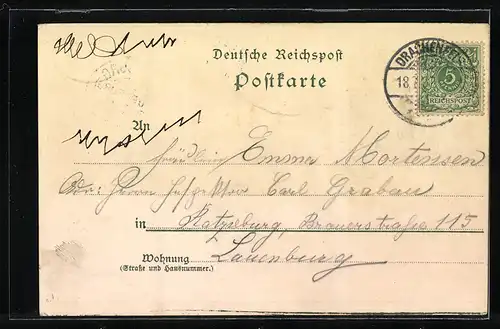 Deutsche Reichspost
Postkarte
DRACHENFELS
18.
5
REICHSPOST
An
Fräulein Emma Mortensen
Adr: Herrn Carl Grabau
in Ratzeburg, Brauerstraße 115
Wohnung Lauenburg
(Straße und Hausnummer.)